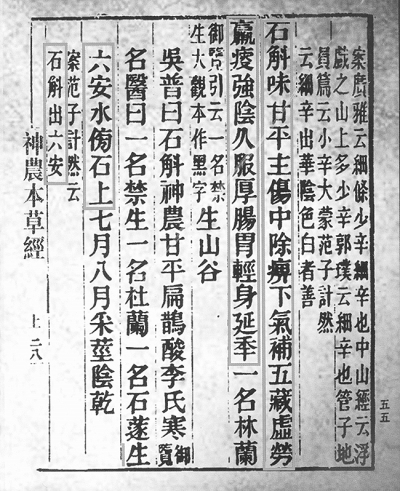 案廣雅云細條少辛細辛也中山經云浮
戲之山上多少辛郭璞云細辛也管子地
員篇云小辛大蒙范子計然
云細辛出華陰色白者善
石斛味甘平主傷中除痹下氣補五藏虛勞
羸瘦強陰久服厚腸胃輕身延秊一名林蘭
御覽引云一名禁
生大觀本作黑字生山谷
吳普曰石斛神農甘平扁鵲酸李氏寒御覽
名醫曰一名禁生一名杜蘭一名石蓫生
六安水傍石上七月八月采莖陰乾
案范子計然云
石斛出六安
神農本草經 上 二八
五五